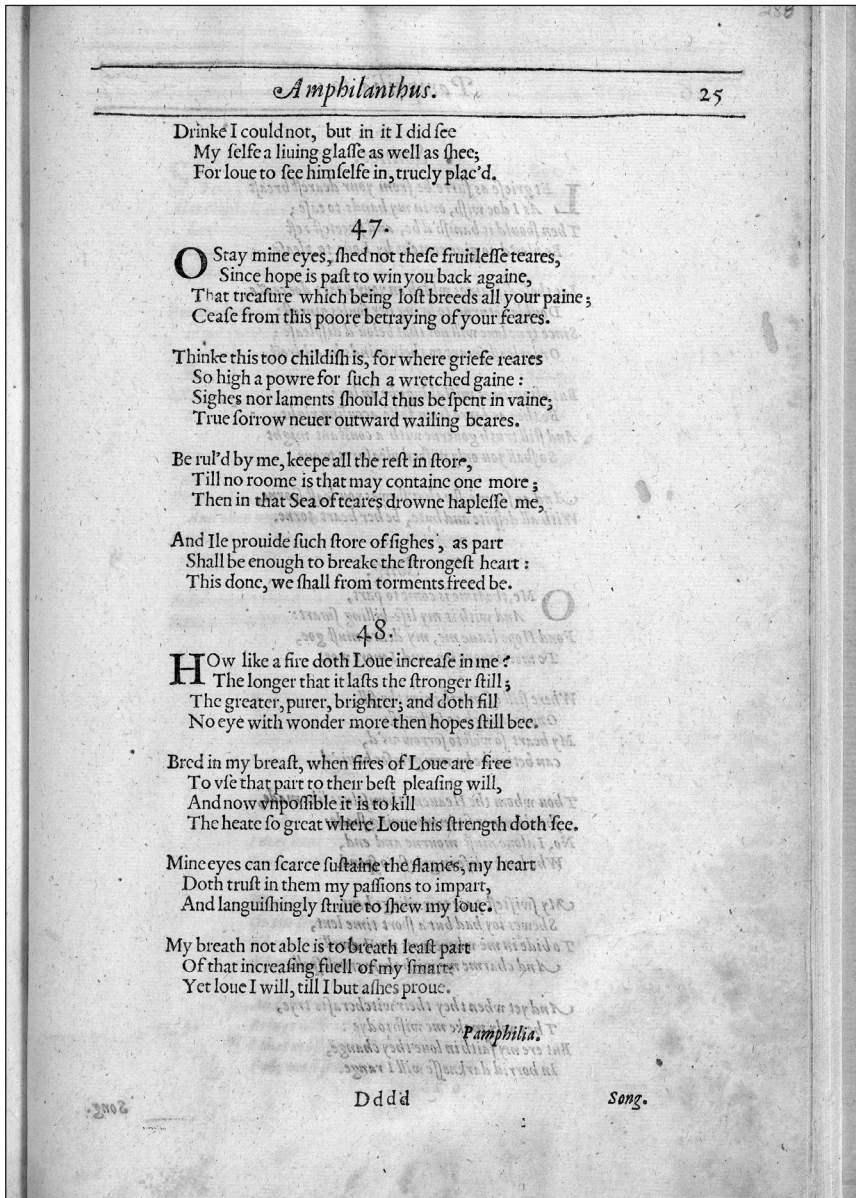 288
Amphilanthus. 25
Drinke I could not, but in it I did ſee
My ſelfe a liuing glaſſe as well as ſhee;
For loue to ſee himſelfe in, truely plac'd.
47.
O Stay mine eyes, ſhed not theſe fruitleſſe teares,
Since hope is paſt to win you back againe,
That treaſure which being loſt breeds all your paine;
Ceaſe from this poore betraying of your feares.
Thinke this too childiſh is, for where griefe reares
So high a powre for ſuch a wretched gaine:
Sighes nor laments ſhould thus be ſpent in vaine;
True ſorrow neuer outward wailing beares.
Be rul'd by me, keepe all the reſt in ſtore,
Till no roome is that may containe one more;
Then in that Sea of teares drowne hapleſſe me,
And Ile prouide ſuch ſtore of ſighes, as part
Shall be enough to breake the ſtrongeſt heart:
This done, we ſhall from torments freed be.
48.
HOw like a fire doth Loue increaſe in me?
The longer that it laſts the ſtronger ſtill;
The greater, purer, brighter; and doth fill
No eye with wonder more then hopes ſtill bee.
Bred in my breaſt, when fires of Loue are free
To vſe that part to their beſt pleaſing will,
And now vnpoſſible it is to kill
The heate ſo great where Loue his ſtrength doth ſee.
Mine eyes can ſcarce ſuſtaine the flames, my heart
Doth truſt in them my paſſions to impart,
And languiſhingly ſtriue to ſhew my loue.
My breath not able is to breath leaſt part
Of that increaſing fuell of my ſmart;
Yet loue I will, till I but aſhes proue.
Pamphilia.
Dddd Song.